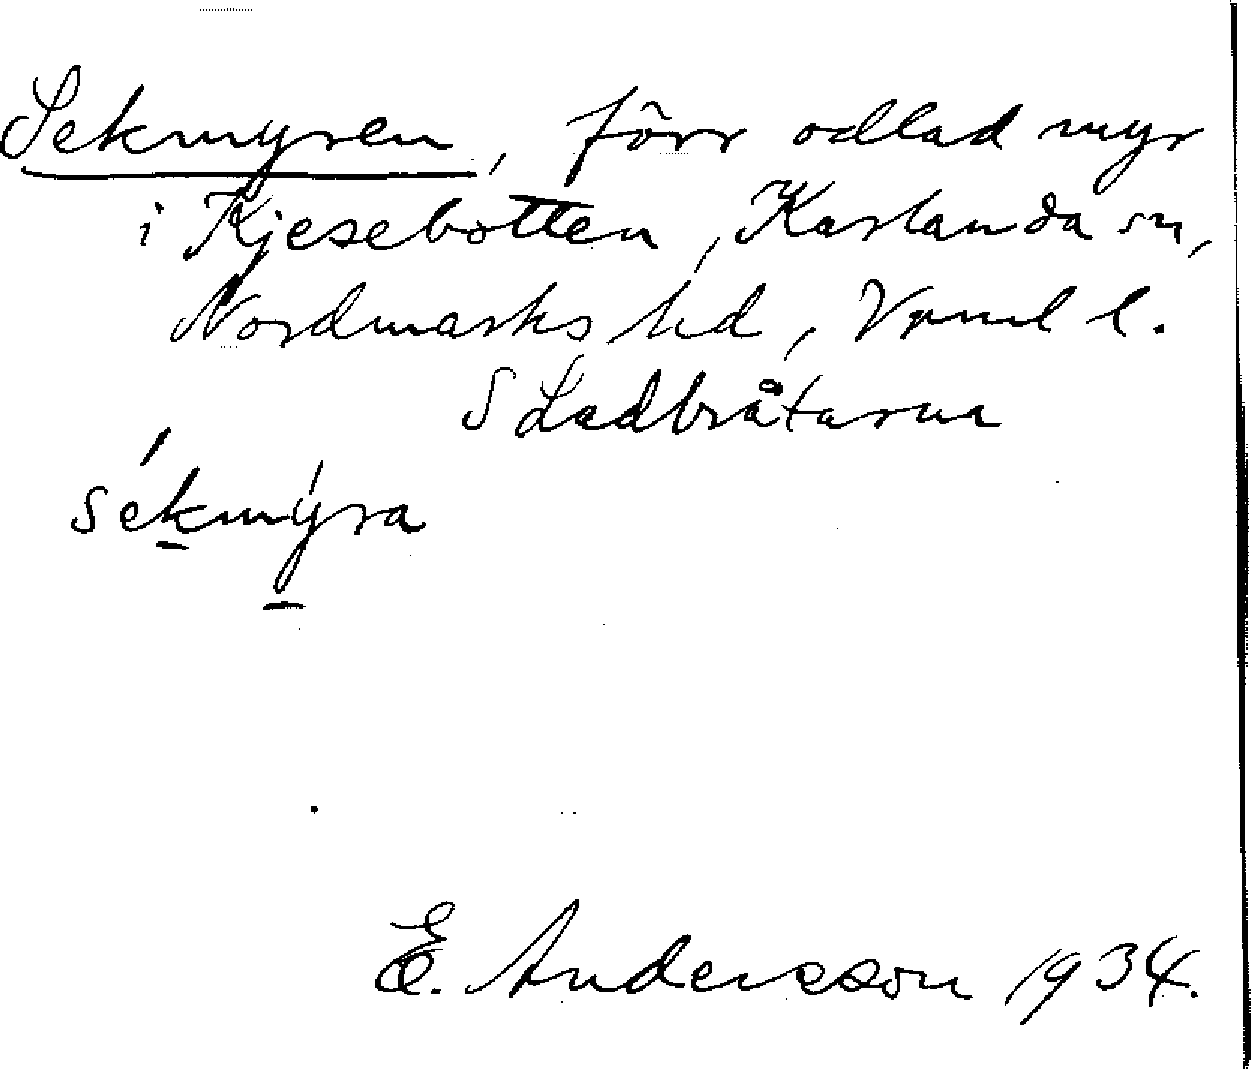 Sekmyren, förr odlad myr
i Kjesebotten, Karlanda sn,
Nordmarks hd, Vrml l.
S Ladbråtarna
sékmýra
E. Andersson 1934.